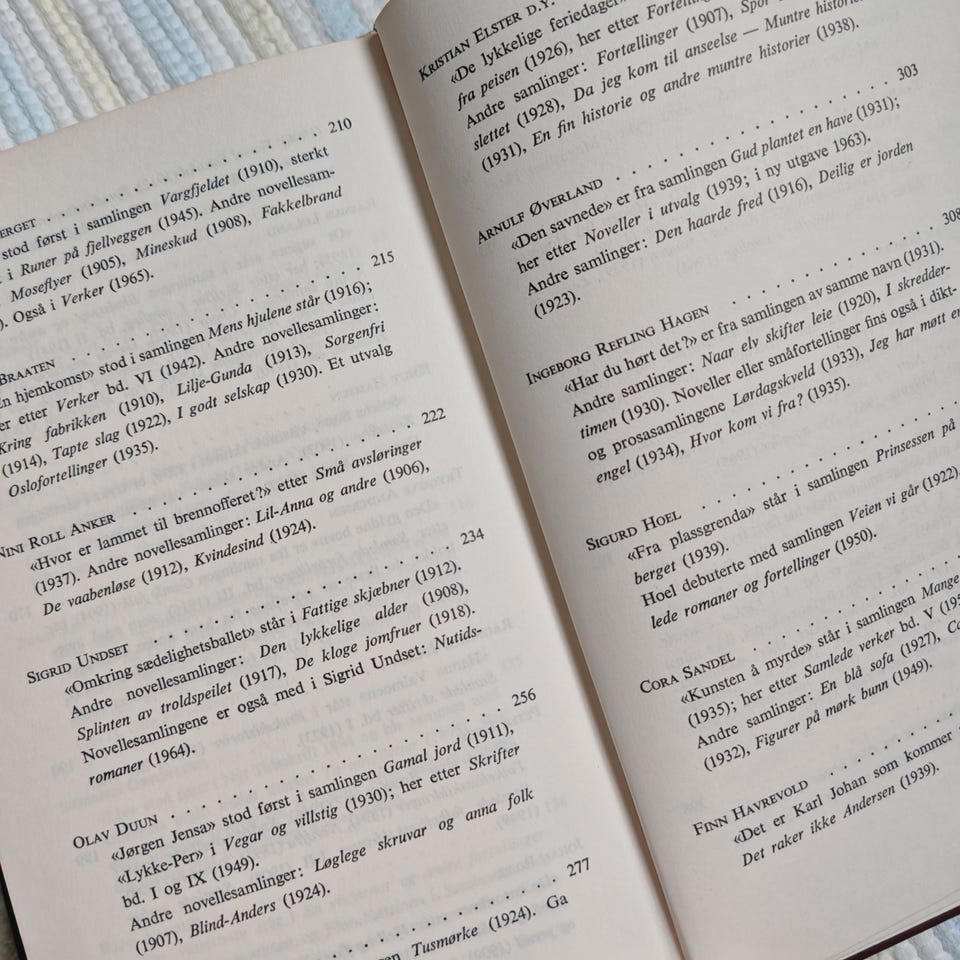 ERGET . . . . . . . . . . . . . . . 210
stod først i samlingen Vargfjeldet (1910), sterkt
i Runer på fjellveggen (1945). Andre novellesam-
Moseflyer (1905), Mineskud (1908), Fakkelbrand
). Også i Verker (1965).
BRAATEN . . . . . . . . . . . . . . . 215
n hjemkomst» stod i samlingen Mens hjulene står (1916);
er etter Verker bd. VI (1942). Andre novellesamlinger:
Kring fabrikken (1910), Lilje-Gunda (1913), Sorgenfri
(1914), Tapte slag (1922), I godt selskap (1930). Et utvalg
Oslofortellinger (1935).
NINI ROLL ANKER . . . . . . . . . . . . . . . 222
«Hvor er lammet til brennofferet?» etter Små avsløringer
(1937). Andre novellesamlinger: Lil-Anna og andre (1906),
De vaabenløse (1912), Kvindesind (1924).
SIGRID UNDSET . . . . . . . . . . . . . . . 234
«Omkring sædelighetsballet» står i Fattige skjæbner (1912).
Andre novellesamlinger: Den lykkelige alder (1908),
Splinten av troldspeilet (1917), De kloge jomfruer (1918).
Novellesamlingene er også med i Sigrid Undset: Nutids-
romaner (1964).
OLAV DUUN . . . . . . . . . . . . . . . 256
«Jørgen Jensa» stod først i samlingen Gamal jord (1911),
«Lykke-Per» i Vegar og villstig (1930); her etter Skrifter
bd. I og IX (1949).
Andre novellesamlinger: Løglege skruvar og anna folk
(1907), Blind-Anders (1924).
. . . . . . . . . . . . . . . 277
en Tusmørke (1924). Ga
KRISTIAN ELSTER D.Y.
«De lykkelige feriedager»
fra peisen (1926), her etter
Andre samlinger: Fortællinger (1907),
slettet (1928), Da jeg kom til anseelse — Muntre historier
(1931), En fin historie og andre muntre historier (1938).
ARNULF ØVERLAND . . . . . . . . . . . . . . . 303
«Den savnede» er fra samlingen Gud plantet en have (1931);
her etter Noveller i utvalg (1939; i ny utgave 1963).
Andre samlinger: Den haarde fred (1916), Deilig er jorden
(1923).
INGEBORG REFLING HAGEN . . . . . . . . . . . . 308
«Har du hørt det?» er fra samlingen av samme navn (1931).
Andre samlinger: Naar elv skifter leie (1920), I skredder-
timen (1930). Noveller eller småfortellinger fins også i dikt-
og prosasamlingene Lørdagskveld (1933), Jeg har møtt en
engel (1934), Hvor kom vi fra? (1935).
SIGURD HOEL . . . . . . . . . . . . . . .
«Fra plassgrenda» står i samlingen Prinsessen på
berget (1939).
Hoel debuterte med samlingen Veien vi går (1922),
lede romaner og fortellinger (1950).
CORA SANDEL . . . . . . . . . . . . . . .
«Kunsten å myrde» står i samlingen Mange
(1935); her etter Samlede verker bd. V (195
Andre samlinger: En blå sofa (1927),
(1932), Figurer på mørk bunn (1949).
FINN HAVREVOLD . . . . . . . . . . .
«Det er Karl Johan som kommer
Det raker ikke Andersen (1939).